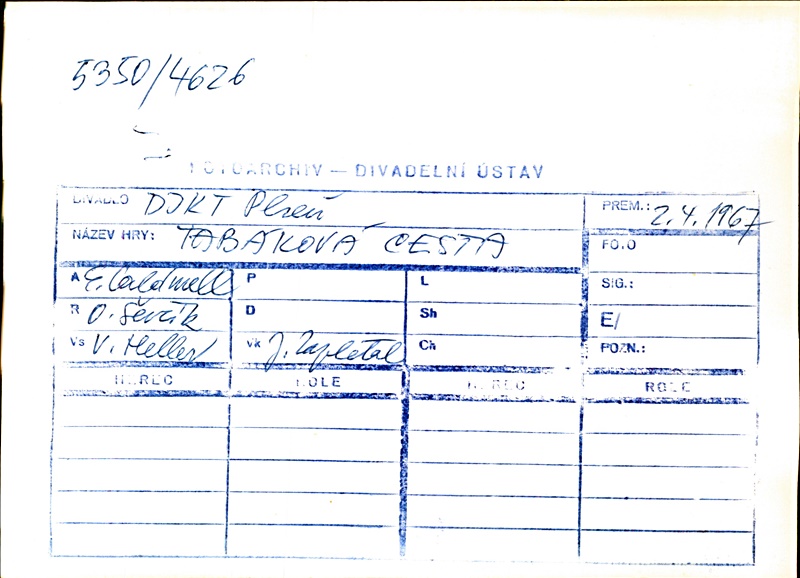 5350/4626
FOTOARCHIV — DIVADELNÍ ÚSTAV
DIVADLO DJKT Plzeň PREM.: 2.4.1967
NÁZEV HRY: TABÁKOVÁ CESTA FOTO
A E. Caldwell P L SIG.:
R O. Ševčík D Sh E/
Vs V. Heller Vk J. Zapletal Ch POZN.:
HEREC ROLE HEREC ROLE